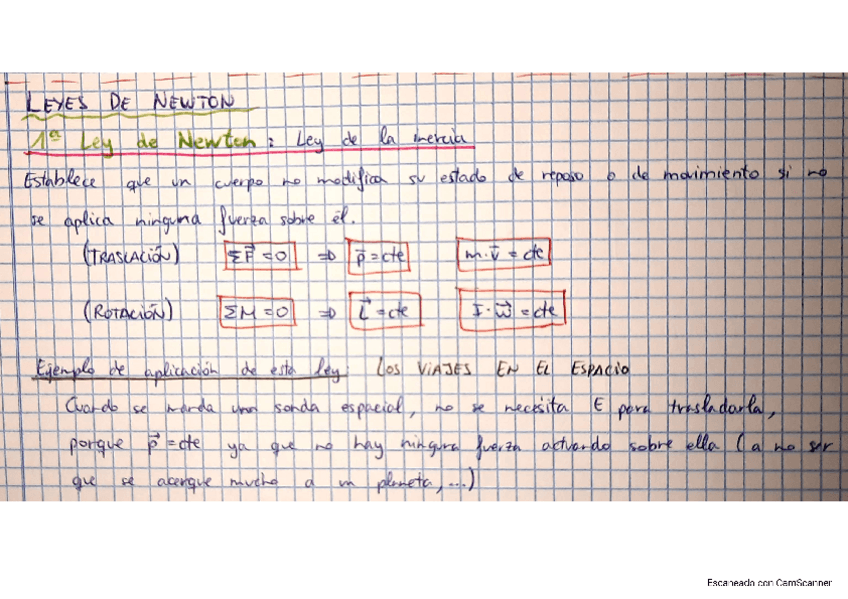 LEYES DE NEWTON
1ª Ley de Newton: Ley de la inercia
Establece que un cuerpo no modifica su estado de reposo o de movimiento si no
se aplica ninguna fuerza sobre él.
(TRASLACIÓN) ΣF⃗ = 0 ⇒ p⃗ = cte m·v⃗ = cte
(ROTACIÓN) ΣM = 0 ⇒ L⃗ = cte I·ω⃗ = cte
Ejemplo de aplicación de esta ley: LOS VIAJES EN EL ESPACIO
Cuando se manda una sonda espacial, no se necesita E para trasladarla,
porque p⃗ = cte ya que no hay ninguna fuerza actuando sobre ella (a no ser
que se acerque mucho a un planeta, ...)
Escaneado con CamScanner